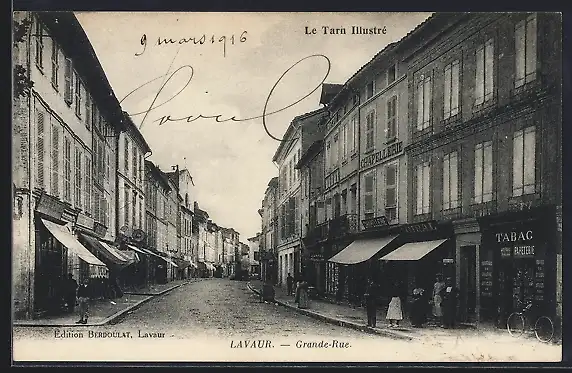 Le Tarn Illustré
9 mars 1916
CHAPELLERIE
TABAC
PAPETERIE
Édition BERDOULAT, Lavaur
LAVAUR. — Grande-Rue.